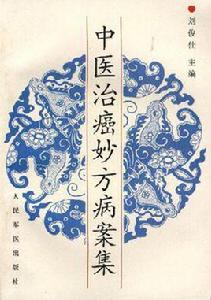 刘俊仕 主编
中医治癌妙方病案集
人民军医出版社